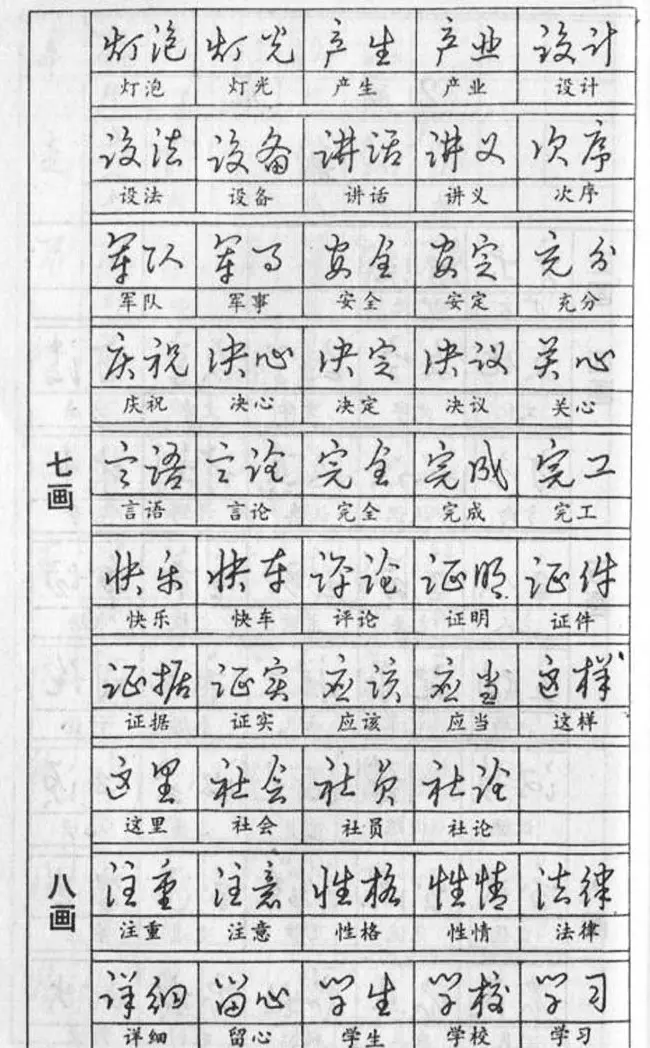 灯泡 灯光 产生 产业 设计
灯泡 灯光 产生 产业 设计
设法 设备 讲话 讲义 次序
设法 设备 讲话 讲义 次序
军队 军事 安全 安定 充分
军队 军事 安全 安定 充分
庆祝 决心 决定 决议 关心
庆祝 决心 决定 决议 关心
七画
言语 言论 完全 完成 完工
言语 言论 完全 完成 完工
快乐 快车 评论 证明 证件
快乐 快车 评论 证明 证件
证据 证实 应该 应当 这样
证据 证实 应该 应当 这样
这里 社会 社员 社论
这里 社会 社员 社论
八画
注重 注意 性格 性情 法律
注重 注意 性格 性情 法律
详细 留心 学生 学校 学习
详细 留心 学生 学校 学习